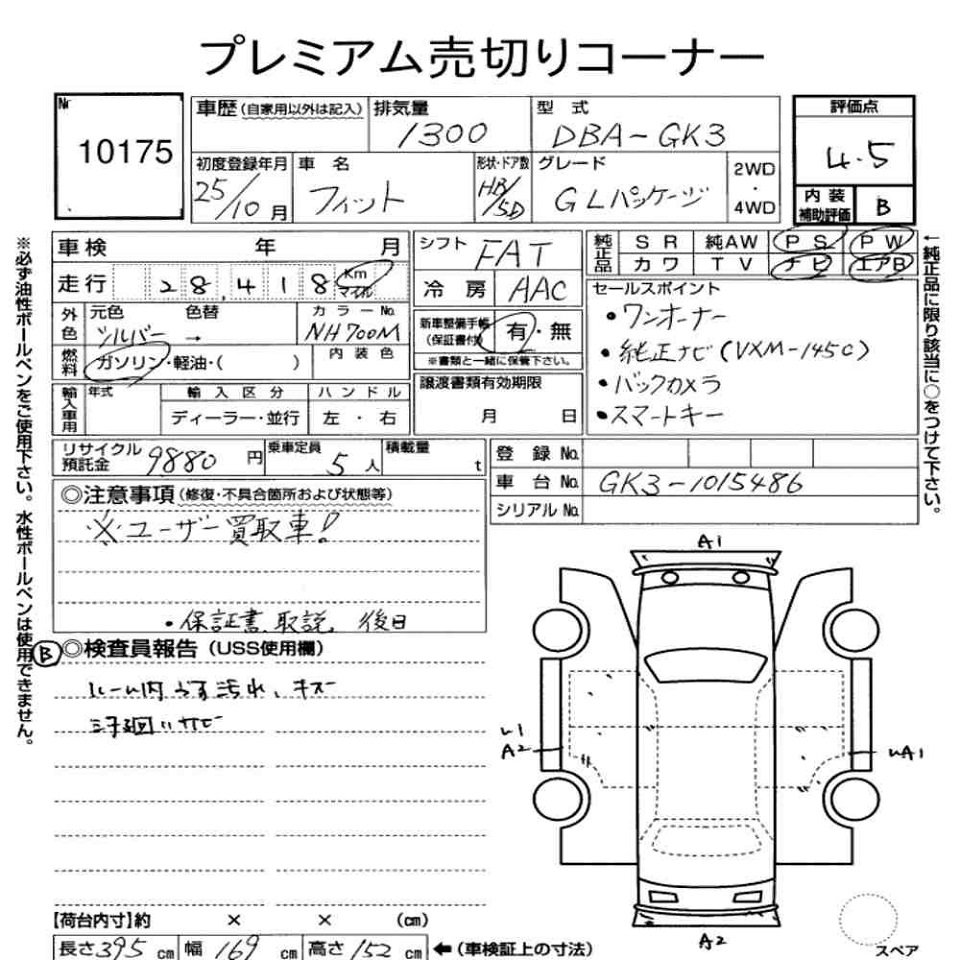 プレミアム売切りコーナー
№ 10175
車歴(自家用以外は記入)
排気量 1300
型式 DBA-GK3
評価点 4.5
初度登録年月 25/10月
車名 フィット
形状・ドア数 HB/5D
グレード GLパッケージ
2WD・4WD
内装補助評価 B
車検 年 月
シフト FAT
純正品 SR 純AW PS PW
カワ TV ナビ エアB
走行 28,418 Km マイル
冷房 AAC
セールスポイント
・ワンオーナー
・純正ナビ(VXM-145C)
・バックカメラ
・スマートキー
外色 元色 シルバー → 色替
カラーNo. NH700M
新車整備手帳(保証書付) 有・無
※書類と一緒に保管下さい。
燃料 ガソリン・軽油・( )
内装色
譲渡書類有効期限
月 日
輸入車用 年式 輸入区分 ハンドル
ディーラー・並行 左・右
リサイクル預託金 9880円
乗車定員 5人
積載量 t
登録No.
車台No. GK3-1015486
シリアルNo.
◎注意事項(修復・不具合箇所および状態等)
※ユーザー買取車!
・保証書、取説 後日
B ◎検査員報告(USS使用欄)
ルーム内うす汚れ、キズ
下廻りサビ
A1
U1
A2
UA1
A2
スペア
【荷台内寸】約 × × (cm)
長さ395cm 幅169cm 高さ152cm ←(車検証上の寸法)
※必ず油性ボールペンをご使用下さい。水性ボールペンは使用できません。
←純正品に限り該当に○をつけて下さい。